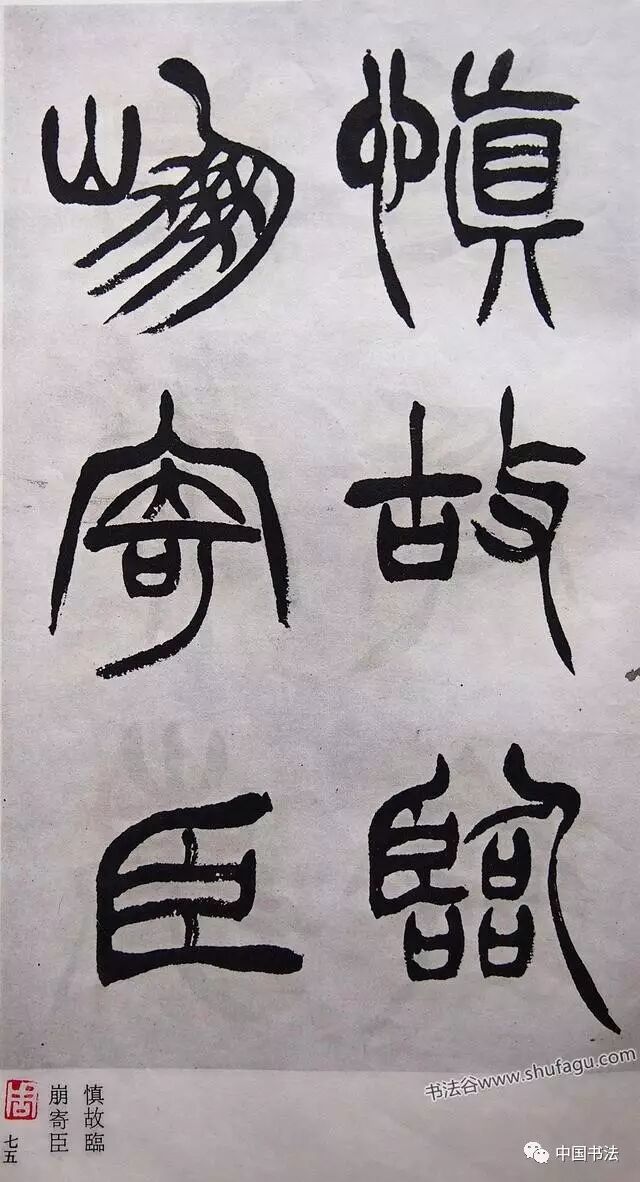 慎故臨
崩寄臣
慎故臨
崩寄臣
七五
书法谷www.shufagu.com
中国书法